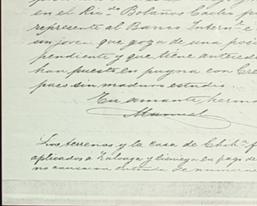 en el Rio. de Bolaños Castro p
represente al Banco Intern.l e
un joven que goza de una posi
pendiente y que tiene anteced
han puesto en pugna con Cre
pues sin maduro estudio.
Tu amante herma
Manuel
Los terrenos y la casa de Chih.a f
aplicados a Zuloaga y
en pago de
no causaran